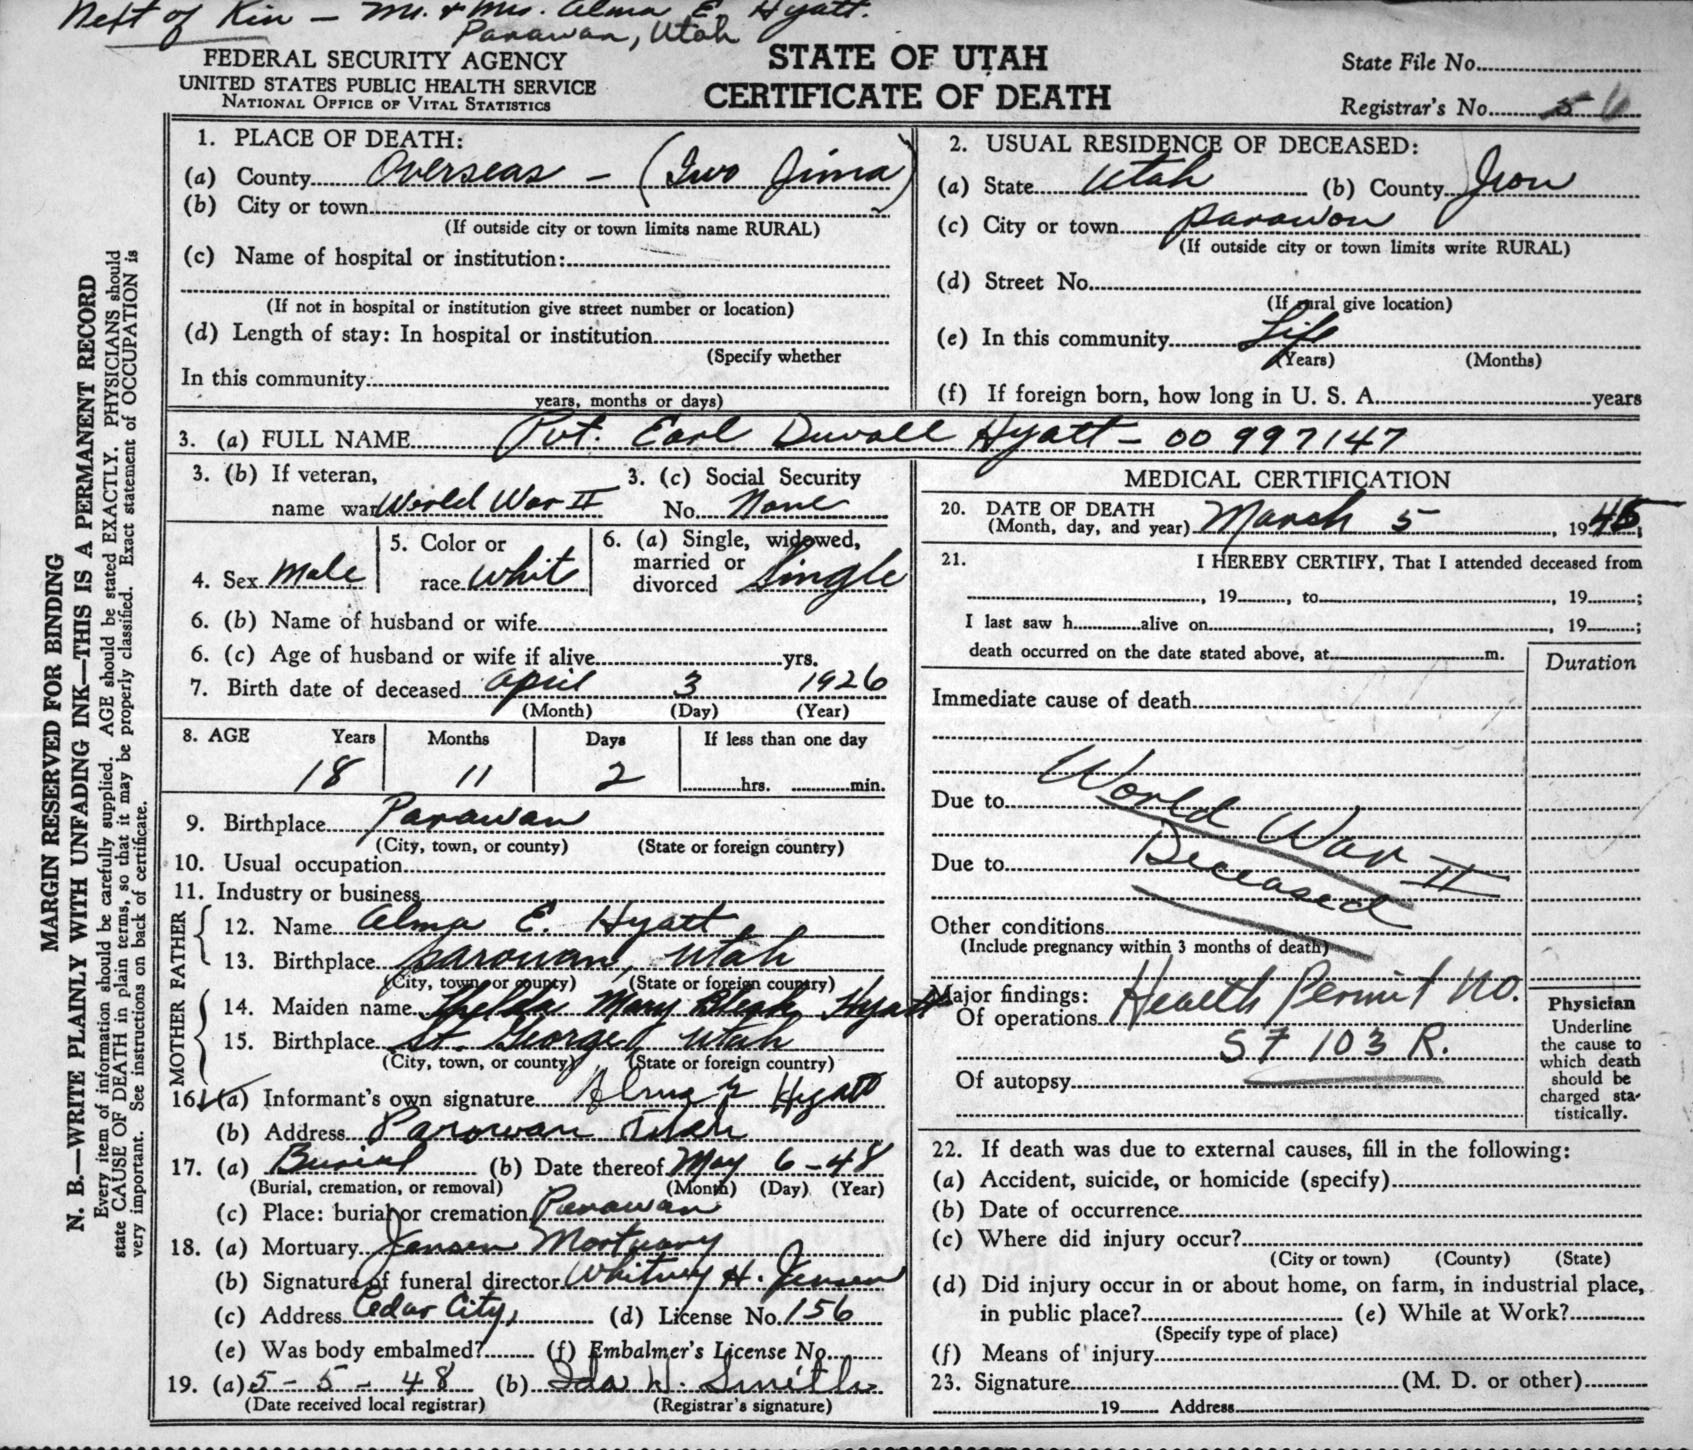 Next of Kin — Mr. & Mrs. Alma E. Hyatt.
Parawan, Utah
FEDERAL SECURITY AGENCY
UNITED STATES PUBLIC HEALTH SERVICE
NATIONAL OFFICE OF VITAL STATISTICS
STATE OF UTAH
CERTIFICATE OF DEATH
State File No.
Registrar's No. 5
MARGIN RESERVED FOR BINDING
N. B.—WRITE PLAINLY WITH UNFADING INK—THIS IS A PERMANENT RECORD
Every item of information should be carefully supplied. AGE should be stated EXACTLY. PHYSICIANS should
state CAUSE OF DEATH in plain terms, so that it may be properly classified. Exact statement of OCCUPATION is
very important. See instructions on back of certificate.
1. PLACE OF DEATH:
(a) County Overseas — (Iwo Jima)
(b) City or town
(If outside city or town limits name RURAL)
(c) Name of hospital or institution:
(If not in hospital or institution give street number or location)
(d) Length of stay: In hospital or institution
(Specify whether
In this community
years, months or days)
2. USUAL RESIDENCE OF DECEASED:
(a) State Utah (b) County Iron
(c) City or town Parawon
(If outside city or town limits write RURAL)
(d) Street No.
(If rural give location)
(e) In this community Life
(Years) (Months)
(f) If foreign born, how long in U. S. A. years
3. (a) FULL NAME Pvt. Earl Duvall Hyatt — 00 997147
3. (b) If veteran,
name war World War II
3. (c) Social Security
No. None
4. Sex Male
5. Color or
race Whit
6. (a) Single, widowed,
married or
divorced Single
6. (b) Name of husband or wife
6. (c) Age of husband or wife if alive yrs.
7. Birth date of deceased April 3 1926
(Month) (Day) (Year)
8. AGE Years Months Days If less than one day
18 11 2 hrs. min.
9. Birthplace Parawan
(City, town, or county) (State or foreign country)
10. Usual occupation
11. Industry or business
FATHER
12. Name Alma E. Hyatt
13. Birthplace Parowan, Utah
(City, town, or county) (State or foreign country)
MOTHER
14. Maiden name Mary Hyatt
15. Birthplace St. George, Utah
(City, town, or county) (State or foreign country)
16. (a) Informant's own signature Alma Hyatt
(b) Address Parowan Utah
17. (a) Burial (b) Date thereof May 6-48
(Burial, cremation, or removal) (Month) (Day) (Year)
(c) Place: burial or cremation Parawan
18. (a) Mortuary Jensen Mortuary
(b) Signature of funeral director Whitney H. Jensen
(c) Address Cedar City, (d) License No. 156
(e) Was body embalmed? (f) Embalmer's License No.
19. (a) 5-5-48 (b) Ida W. Smith
(Date received local registrar) (Registrar's signature)
MEDICAL CERTIFICATION
20. DATE OF DEATH
(Month, day, and year) March 5, 1945
21. I HEREBY CERTIFY, That I attended deceased from
, 19 , to , 19 ;
I last saw h alive on , 19 ;
death occurred on the date stated above, at m.
Duration
Immediate cause of death
Due to World War II
Due to Deceased
Other conditions
(Include pregnancy within 3 months of death)
Major findings: Health Permit No.
Of operations
57 103 R.
Of autopsy
Physician
Underline
the cause to
which death
should be
charged sta-
tistically.
22. If death was due to external causes, fill in the following:
(a) Accident, suicide, or homicide (specify)
(b) Date of occurrence
(c) Where did injury occur?
(City or town) (County) (State)
(d) Did injury occur in or about home, on farm, in industrial place,
in public place? (e) While at Work?
(Specify type of place)
(f) Means of injury
23. Signature (M. D. or other)
19 Address